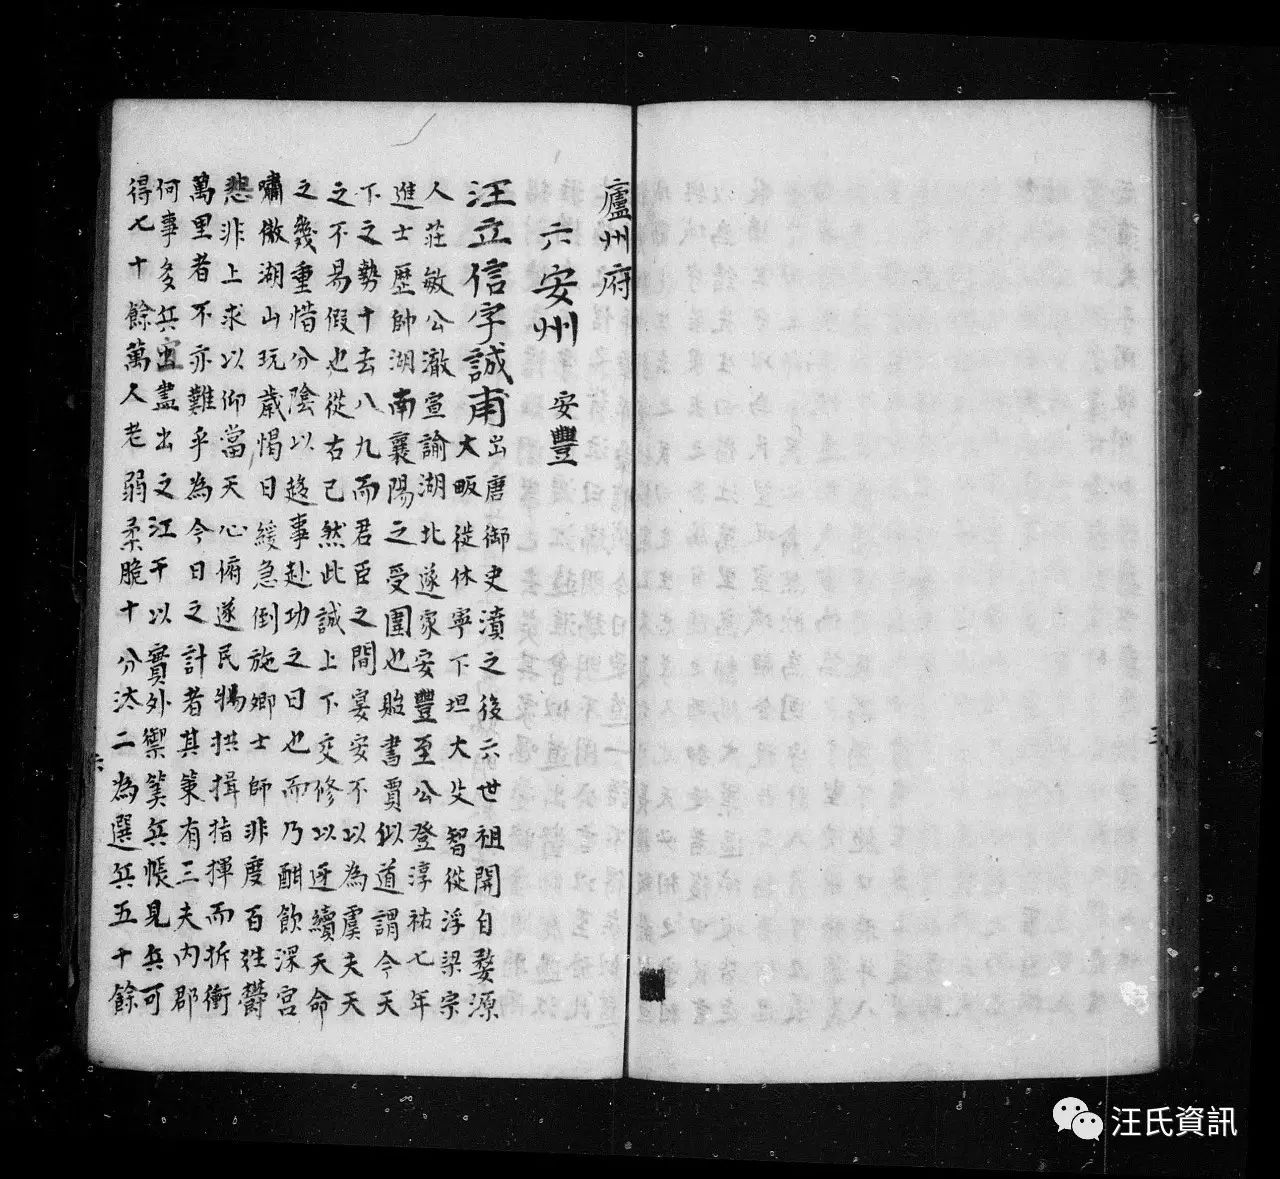 廬州府
六安州 安豐
汪立信字誠甫出唐御史濆之後六世祖開自婺源
大畈徙休寧下坦大父智從浮梁宗
人莊敏公澈宣諭湖北遂家安豐至公登淳祐七年
進士歷帥湖南襄陽之受圍也貽書賈似道謂今天
下之勢十去八九而君臣之間宴安不以為虞夫天
之不易假也從右已然此誠上下交修以迓續天命
之幾重惜分陰以趍事赴功之日也而乃酣飲深宮
嘯傲湖山玩歲愒日緩急倒施卿士師非度百姓鬱
怨非上求以仰當天心俯遂民物拱揖指揮而折衝
萬里者不亦難乎為今日之計者其策有三夫內郡
何事多兵宜盡出之江干以實外禦筭兵帳見兵可
得七十餘萬人老弱柔脆十分汰二為選兵五十餘
六
汪氏資訊